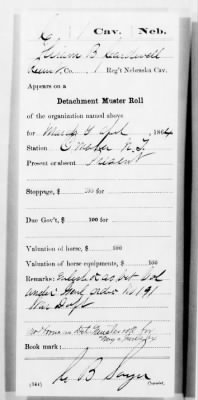 C 1 Cav. Neb.
Hiram B. Hardwell
, Co. , 1 Reg't Nebraska Cav.
Appears on a
Detachment Muster Roll
of the organization named above
for March & April, 1864
Station Omaha N. T.
Present or absent Present
Stoppage, $ 100 for
Due Gov't, $ 100 for
Valuation of horse, $ 100
Valuation of horse equipments, $ 100
Remarks: Enlisted as Vet Vol
under Genl Order No 191
War Dept
Book mark:
(341) Copyist.